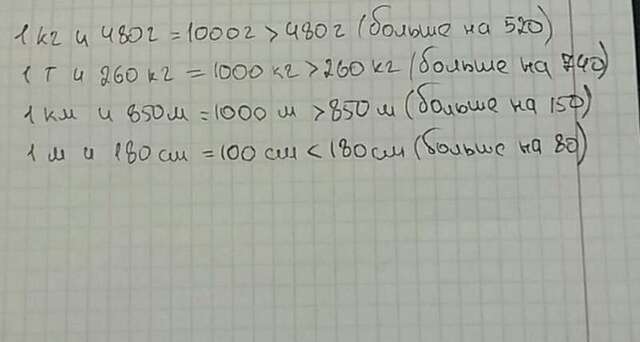 1 кг и 480г = 1000г > 480г (больше на 520)
1 т и 260 кг = 1000 кг > 260 кг (больше на 740)
1 км и 850м = 1000 м > 850 м (больше на 150)
1 м и 180 см = 100 см < 180 см (больше на 80)